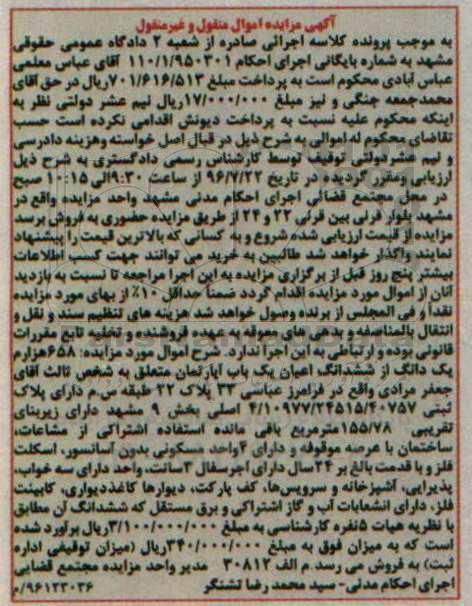 آگهی مزایده اموال منقول و غیرمنقول
به موجب پرونده کلاسه اجرائی صادره از شعبه ۲ دادگاه عمومی حقوقی
مشهد به شماره بایگانی اجرای احکام ۱۱۰/۱/۹۵۰۳۰۱ آقای عباس معلمی
عباس آبادی محکوم است به پرداخت مبلغ ۷۰۱/۶۱۶/۵۱۳ریال در حق آقای
محمدجمعه جنگی و نیز مبلغ ۱۷/۰۰۰/۰۰۰ریال نیم عشر دولتی نظر به
اینکه محکوم علیه نسبت به پرداخت دیونش اقدامی نکرده است حسب
تقاضای محکوم له اموالی به شرح ذیل در قبال اصل خواسته وهزینه دادرسی
و نیم عشردولتی توقیف توسط کارشناس رسمی دادگستری به شرح ذیل
ارزیابی ومقرر گردیده در تاریخ ۹۶/۷/۲۲ از ساعت ۹:۳۰الی ۱۰:۱۵ صبح
در محل مجتمع قضائی اجرای احکام مدنی مشهد واحد مزایده واقع در
مشهد بلوار قرنی بین قرنی ۲۲ و ۲۴ از طریق مزایده حضوری به فروش برسد
مزایده از قیمت ارزیابی شده شروع و به کسانی که بالاترین قیمت را پیشنهاد
نمایند واگذار خواهد شد طالبین به خرید می توانند جهت کسب اطلاعات
بیشتر پنج روز قبل از برگزاری مزایده به این اجرا مراجعه تا نسبت به بازدید
آنان از اموال مورد مزایده اقدام گردد ضمناً حداقل ۱۰٪ از بهای مورد مزایده
نقداً و فی المجلس از برنده وصول خواهد شد هزینه های تنظیم سند و نقل و
انتقال بالمناصفه و بدهی های معوقه به عهده فروشنده و تخلیه تابع مقررات
قانونی بوده و ارتباطی به این اجرا ندارد. شرح اموال مورد مزایده: ۶۵۸هزارم
یک دانگ از ششدانگ اعیان یک باب آپارتمان متعلق به شخص ثالث آقای
جعفر مرادی واقع در فرامرز عباسی ۳۳ پلاک ۳۲ طبقه س.م دارای پلاک
ثبتی ۴/۱۰۹۷۷/۲۴۵۱۵/۴۰۷۵۷ اصلی بخش ۹ مشهد دارای زیربنای
تقریبی ۱۵۵/۷۸مترمربع باقی مانده استفاده اشتراکی از مشاعات،
ساختمان با عرصه موقوفه و دارای ۴واحد مسکونی بدون آسانسور، اسکلت
فلز و با قدمت بالغ بر ۲۴سال دارای آجرسفال ۳سانت، واحد دارای سه خواب،
پذیرایی، آشپزخانه و سرویس‌ها، کف پارکت، دیوارها کاغذدیواری، کابینت
فلز، دارای انشعابات آب و گاز اشتراکی و برق مستقل که ششدانگ آن مطابق
با نظریه هیات ۵نفره کارشناسی به مبلغ ۳/۱۰۰/۰۰۰/۰۰۰ریال برآورد شده
است که به میزان فوق به مبلغ ۳۴۰/۰۰۰/۰۰۰ریال (میزان توقیفی اداره
ثبت) به فروش می رسد.م الف ۳۰۸۱۲ مدیر واحد مزایده مجتمع قضایی
اجرای احکام مدنی- سید محمد رضا تشنگر ۹۶۱۲۳۰۳۶/